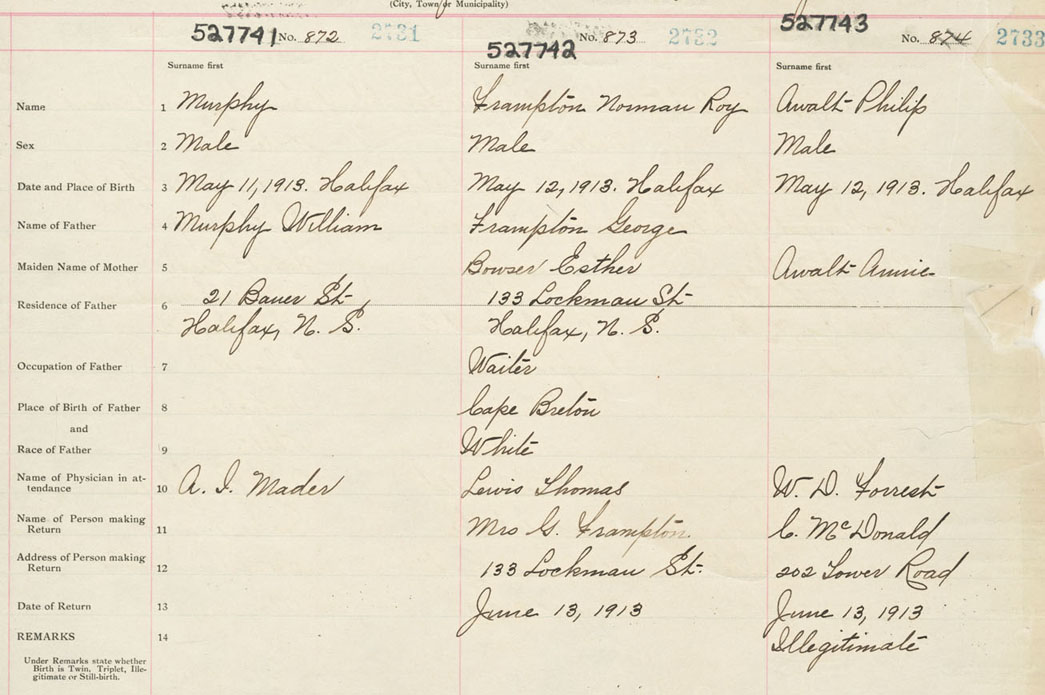 (City, Town or Municipality)
527741 No. 872 2731
527742 No. 873 2732
527743 No. 874 2733
Surname first Surname first Surname first
Name 1 Murphy Frampton Norman Roy Awalt Philip
Sex 2 Male Male Male
Date and Place of Birth 3 May 11, 1913. Halifax May 12, 1913. Halifax May 12, 1913. Halifax
Name of Father 4 Murphy William Frampton George
Maiden Name of Mother 5 Bowser Esther Awalt Annie
Residence of Father 6 21 Bauer St 133 Lockman St
Halifax, N. S. Halifax, N. S.
Occupation of Father 7 Waiter
Place of Birth of Father 8 Cape Breton
and
Race of Father 9 White
Name of Physician in at-
tendance 10 A. I. Mader Lewis Thomas W. D. Forrest
Name of Person making
Return 11 Mrs G. Frampton C. McDonald
Address of Person making
Return 12 133 Lockman St. 202 Tower Road
Date of Return 13 June 13, 1913 June 13, 1913
REMARKS 14 Illegitimate
Under Remarks state whether
Birth is Twin, Triplet, Ille-
gitimate or Still-birth.